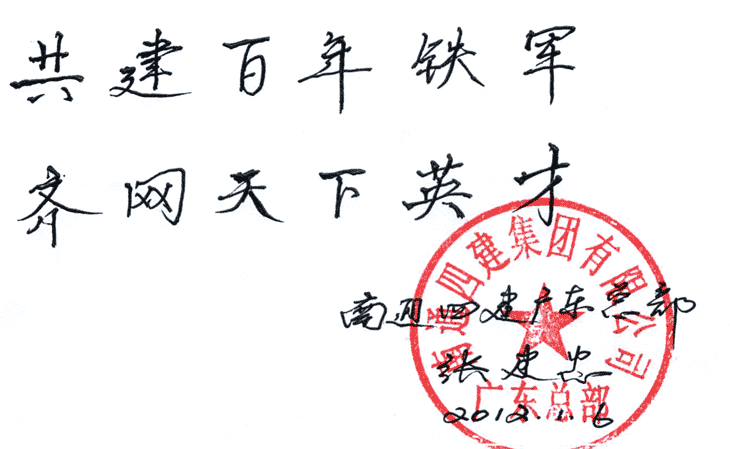 共建百年铁军
齐网天下英才
南通四建集团有限公司
南通四建广东总部
张建忠
广东总部
2012.1.6